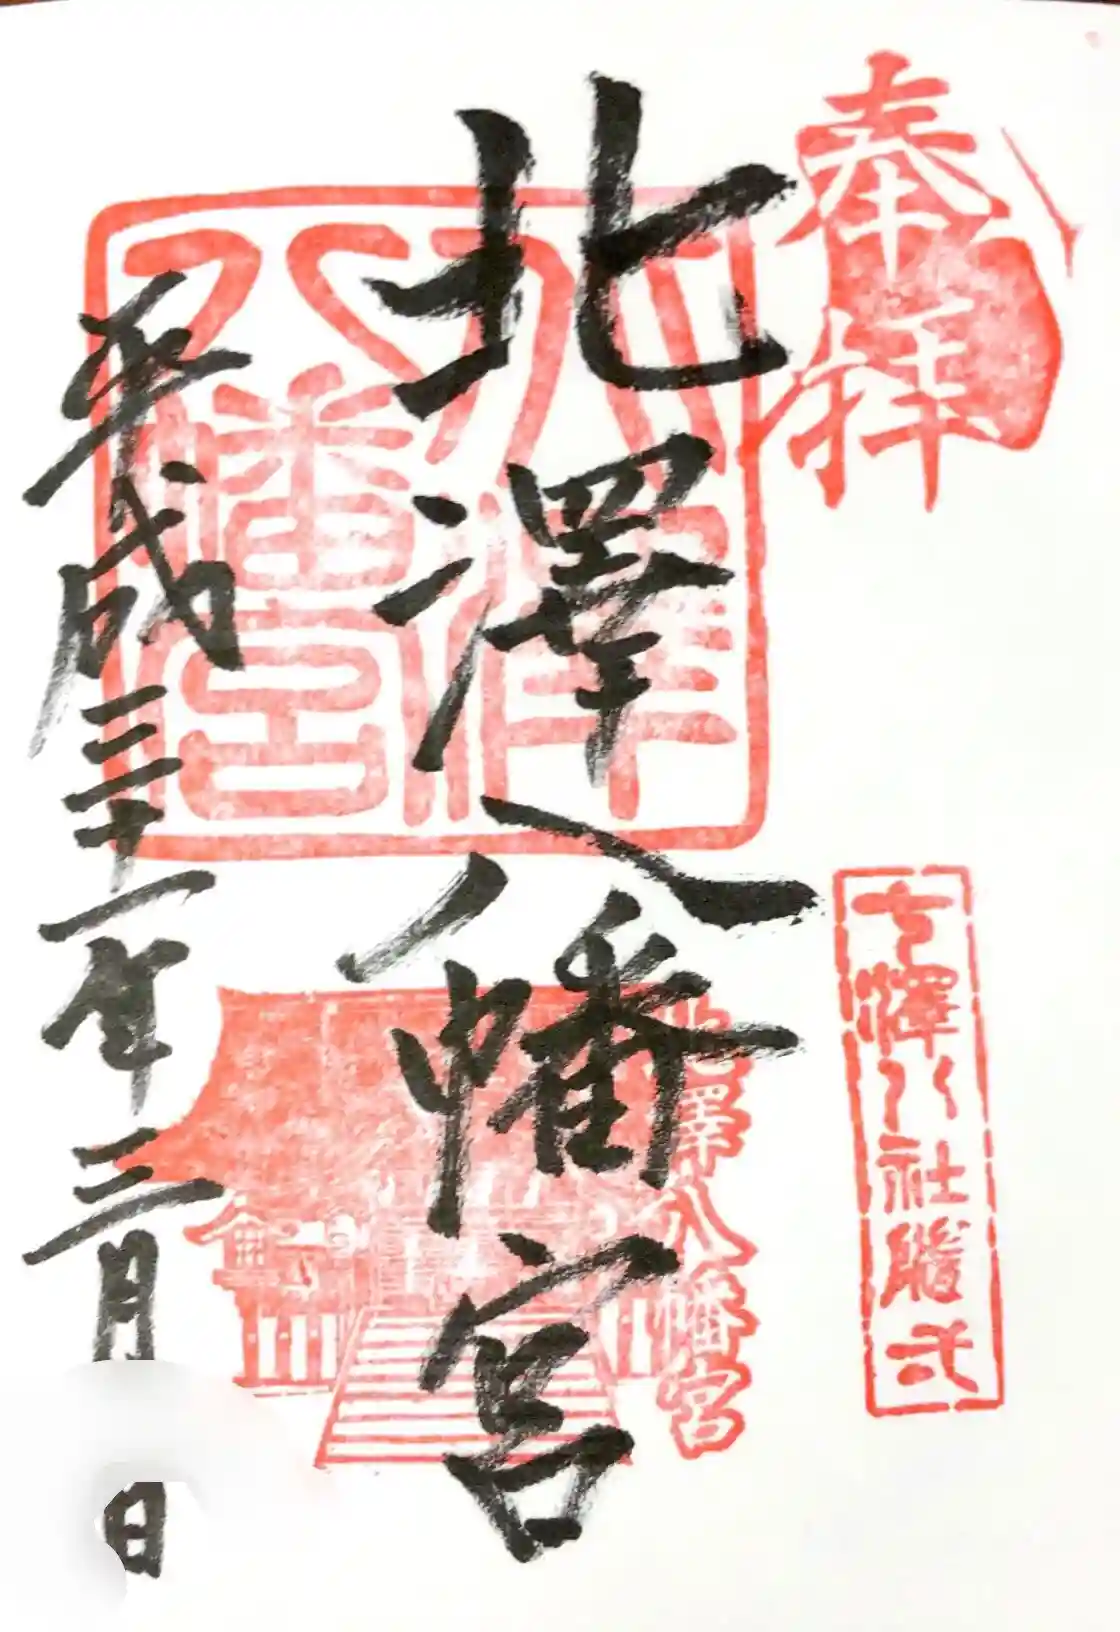 奉拝
七澤八社随弌
北澤八幡宮
北澤
八幡宮
北澤八幡宮
平成三十一年三月 日